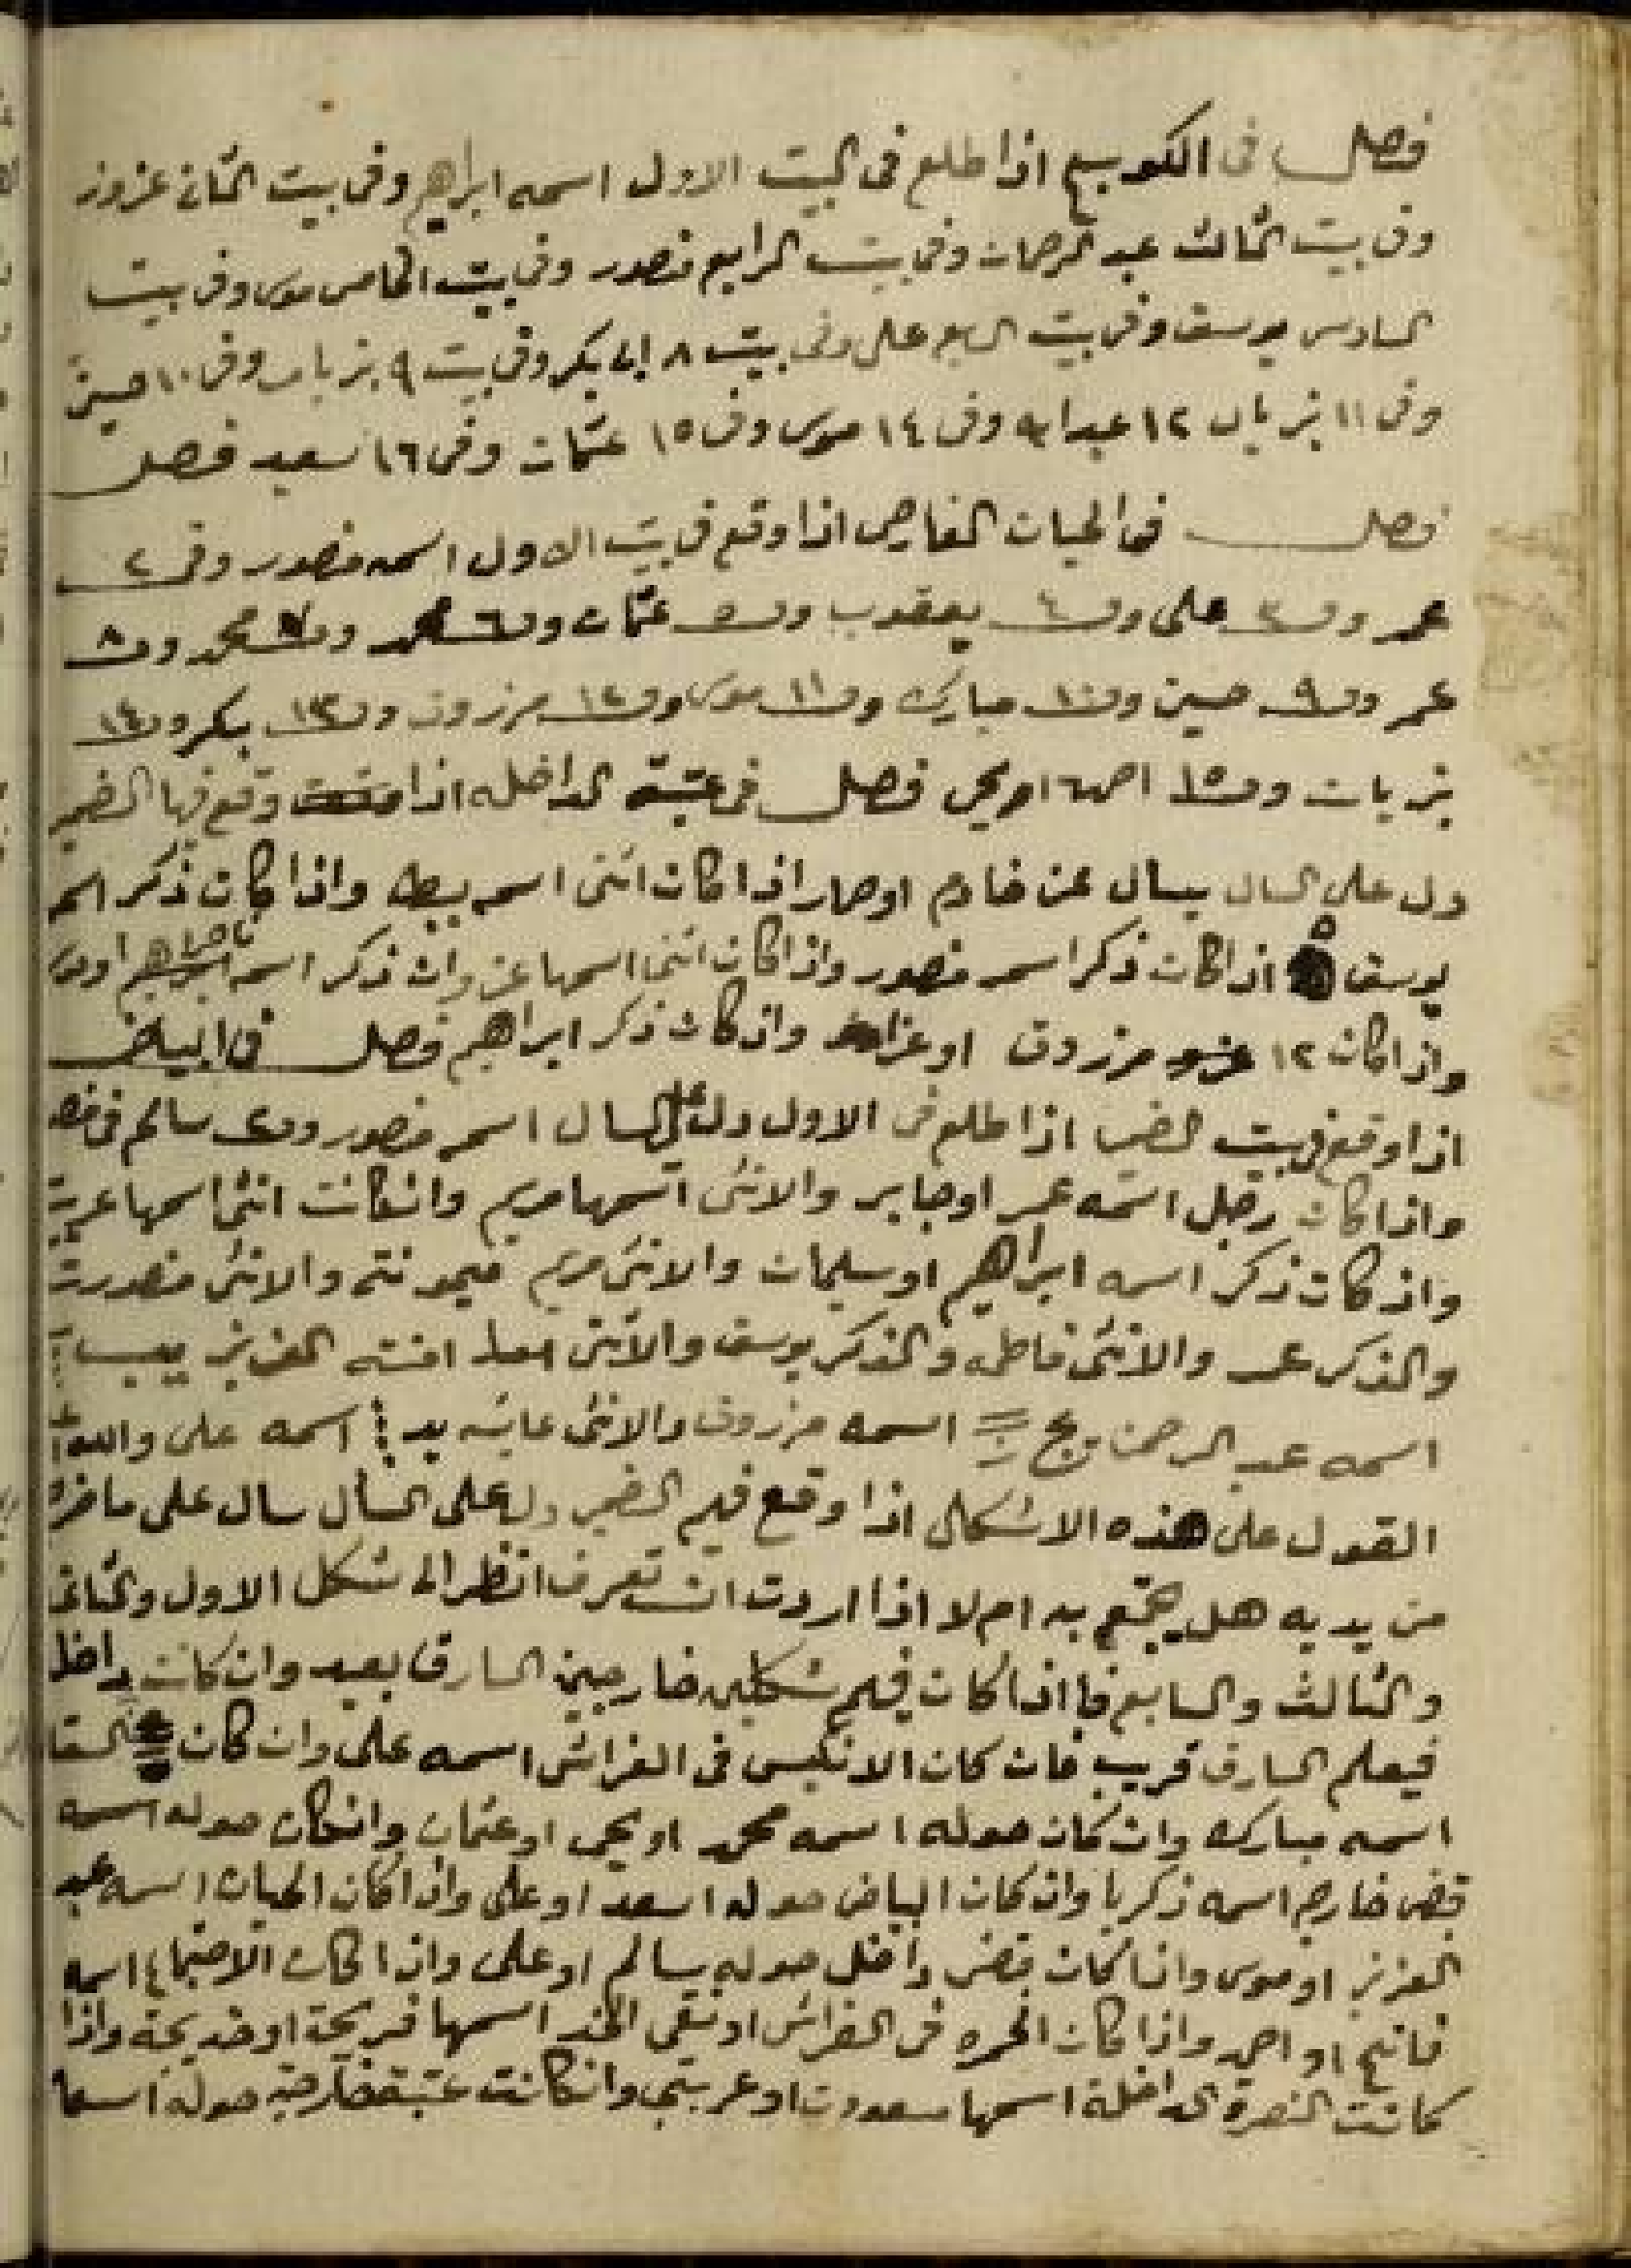 فصل في الكوسج اذا طلع في البيت الاول اسمه ابراهيم وفي بيت الثاني عزوز
وفي بيت الثالث عبد الرحمان وفي بيت الرابع منصور وفي بيت الخامس موسى وفي بيت
السادس يوسف وفي بيت السابع على وفي بيت ٨ ابى بكر وفي بيت ٩ وفي ١٠ حسين
وفي ١١ ١٢ عبد الله وفي ١٤ موسى وفي ١٥ عثمان وفي ١٦ سعيد فصل
فصل في الحيان اذا وقع في بيت الاول اسمه منصور وفي ٢
عمر وفي ٣ على وفي ٤ يعقوب وفي ٥ عثمان وفي ٦ محمد وفي ٧ محمد وفي ٨
عمر وفي ٩ حسين وفي ١٠ مبارك وفي ١١ موسى وفي ١٢ مرزوق وفي ١٣ بكر وفي ١٤
وفي ١٥ يحي فصل في عتبة الداخله اذا وقع فيها الضمير
دل على السال يسال عن خادم او حمار اذا كان انثى اسمه واذا كان ذكر اسمه
يوسف اذا كان ذكر اسمه منصور واذا كان انثى اسمها وان ذكر اسمه
واذا كان ١٢ مرزوق او واذ كان ذكر ابراهيم فصل في البياض
اذا وقع في بيت الضمير اذا طلع في الاول دل على السال اسمه منصور سالم في
واذا كان رجل اسمه عمر او جابر والانثى اسمها مريم وانكانت انثى اسمها
واذ كان ذكر اسمه ابراهيم او سليمان والانثى مريم ميمونته والانثى منصورت
والذكر عمر والانثى فاطمه والذكر يوسف والانثى العزيز
اسمه عبد الرحمن اسمه مرزوق والانثى عايشه اسمه على
القول على هذه الاشكال اذا وقع فيهم الضمير دل على السأل سال على ما خرج
من يديه هل يجتمع به ام لا اذا اردت ان تعرف انظر الى شكل الاول والثاني
والثالث والسابع فا اذا كان فيهم شكلين خارجين السارق بعيد وان كانت داخل
فيعلم السارق قريب فان كان الانكيس في الفراش اسمه على وان كان
اسمه مبارك وان كان حوله اسمه محمد او يحي او عثمان وانكان حوله اسمه
قبض خارج اسمه زكريا وان كان البياض حوله اسعد او على واذا كان الحيان اسمه عبد
العزيز او موسى واذا كان قبض داخل حوله سالم او على واذا كان الاجتماع اسمه
او احمد واذا كان الحمره في الفراش او نقي الخد اسمها او خديجة واذا
كانت النصرة الداخلة اسمها سعدوت او وانكانت عتبة خارجة حوله